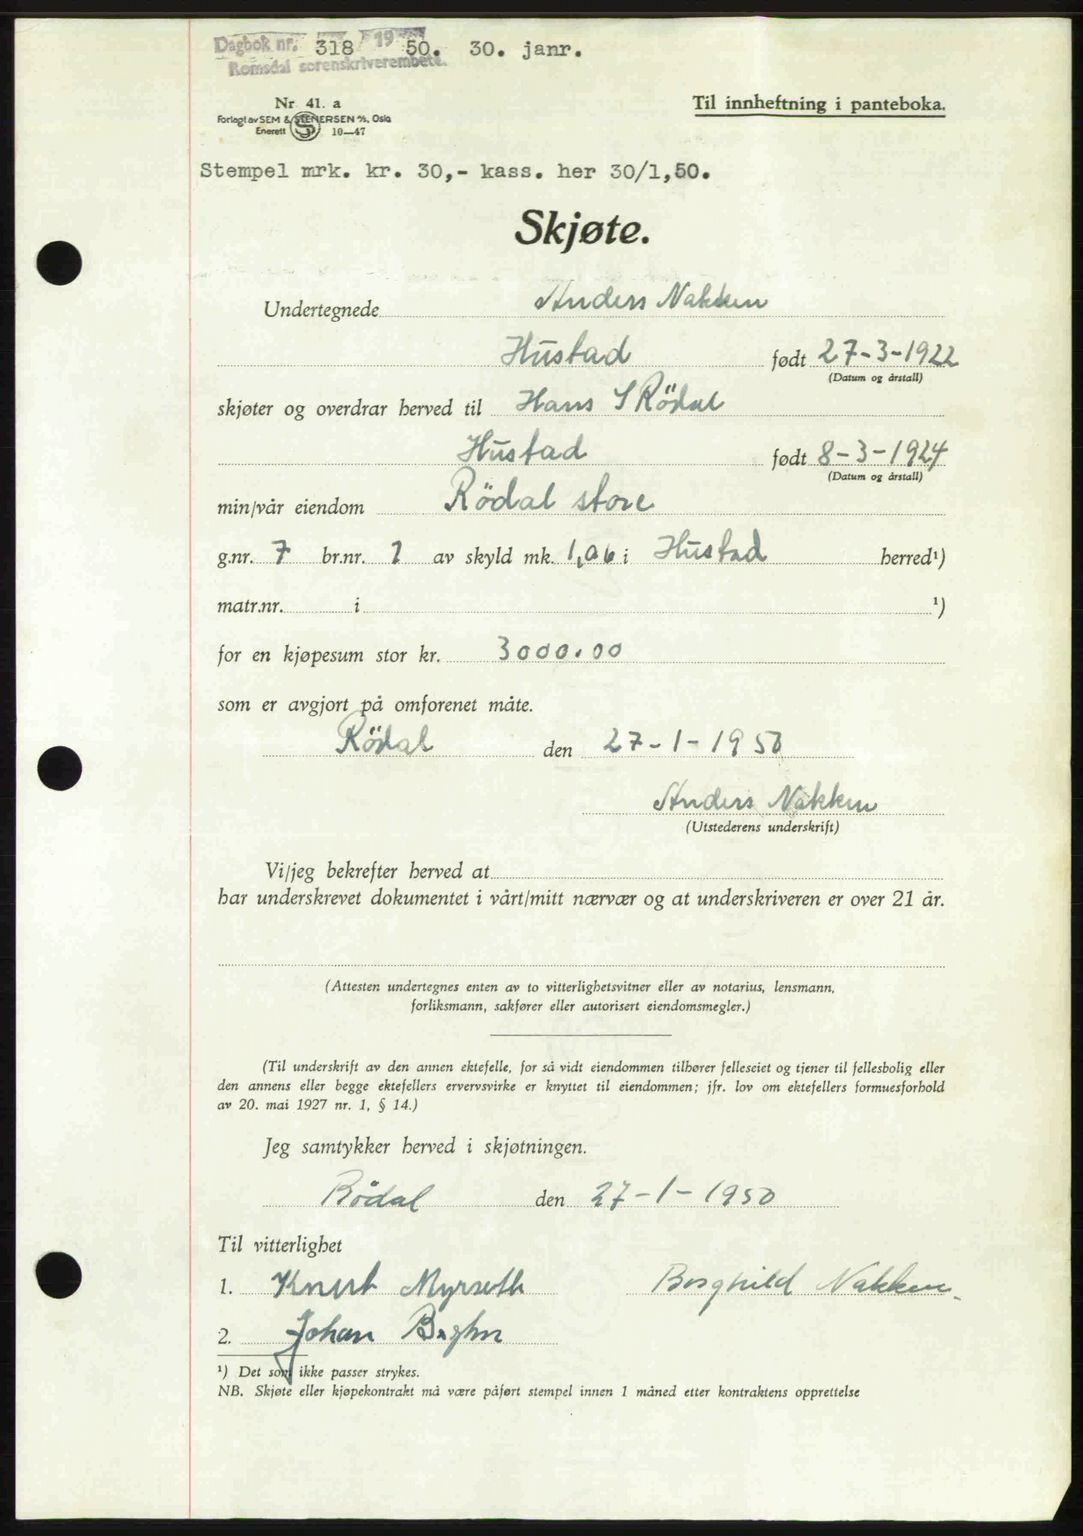 Dagbok nr. 318 1950. 30. janr.
Romsdal sorenskriverembete.
Nr 41. a
Til innheftning i panteboka.
Forlagt av SEM & STENERSEN A/S, Oslo
Enerett S 10—47
Stempel mrk. kr. 30,- kass. her 30/1,50.
Skjøte.
Undertegnede Anders Nakken
Hustad født 27-3-1922
(Datum og årstall)
skjøter og overdrar herved til Hans S Rödal
Hustad født 8-3-1924
(Datum og årstall)
min/vår eiendom Rödal store
g.nr. 7 br.nr. 1 av skyld mk. 1,06 i Hustad herred¹)
matr.nr. i ¹)
for en kjøpesum stor kr. 3000.00
som er avgjort på omforenet måte.
Rödal den 27-1-1950
Anders Nakken
(Utstederens underskrift)
Vi/jeg bekrefter herved at
har underskrevet dokumentet i vårt/mitt nærvær og at underskriveren er over 21 år.
(Attesten undertegnes enten av to vitterlighetsvitner eller av notarius, lensmann,
forliksmann, sakfører eller autorisert eiendomsmegler.)
(Til underskrift av den annen ektefelle, for så vidt eiendommen tilhører felleseiet og tjener til fellesbolig eller
den annens eller begge ektefellers ervervsvirke er knyttet til eiendommen; jfr. lov om ektefellers formuesforhold
av 20. mai 1927 nr. 1, § 14.)
Jeg samtykker herved i skjøtningen.
Rödal den 27-1-1950
Til vitterlighet
1. Knut Myrseth Borghild Nakken.
2. Johan
¹) Det som ikke passer strykes.
NB. Skjøte eller kjøpekontrakt må være påført stempel innen 1 måned etter kontraktens opprettelse